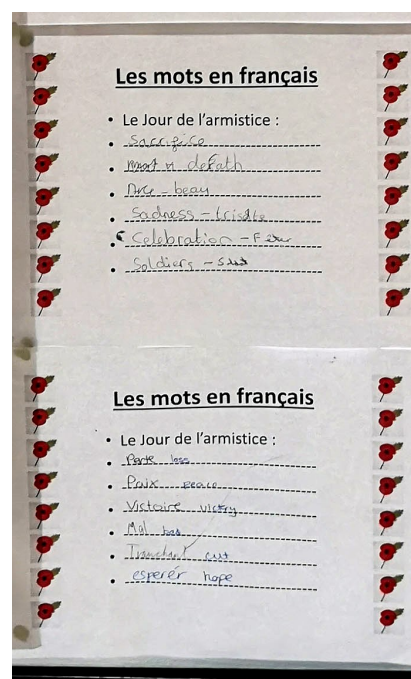 Les mots en français
• Le Jour de l'armistice :
• Sacrifice
• mort defath
• Nice - beau
• Sadness - triste
• Celebration - Fête
• Soldiers -
Les mots en français
• Le Jour de l'armistice :
• Perte loss
• Paix peace
• Victoire victry
• Mal bad
• Tranchant cut
• esperér hope